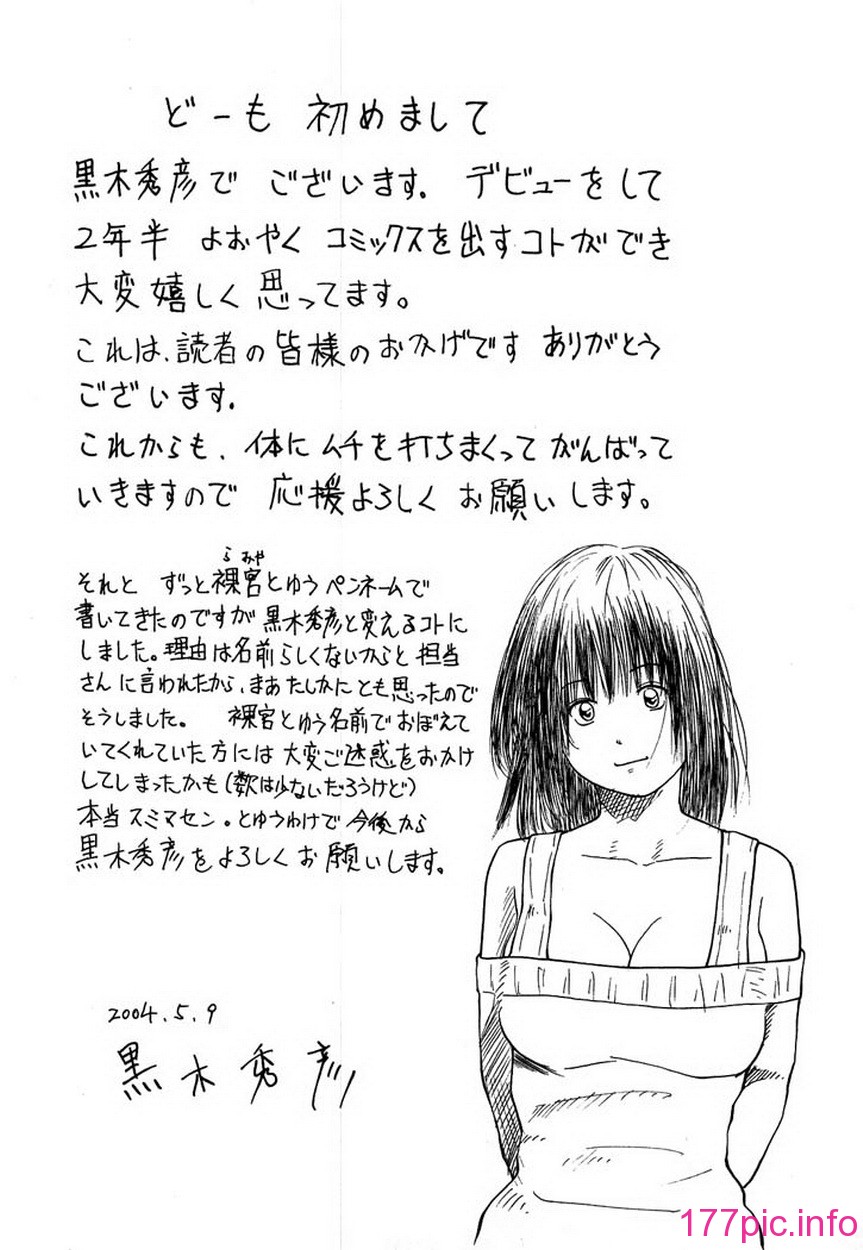 どーも 初めまして
黒木秀彦で ございます. デビューをして
2年半 よおやく コミックスを出すコトができ
大変嬉しく思ってます。
これは、読者の皆様のおかげです ありがとう
ございます.
これからも、体にムチを打ちまくって がんばって
いきますので 応援よろしく お願いします。
らみや
それと ずっと裸宮とゆうペンネームで
書いてきたのですが黒木秀彦と変えるコトに
しました。理由は名前らしくないからと担当
さんに言われたから、まあたしかにとも思ったので
そうしました。 裸宮とゆう名前でおぼえて
いてくれていた方には大変ご迷惑をおかけ
してしまったかも(数は少ないだろうけど)
本当スミマセン。とゆうわけで今後から
黒木秀彦をよろしくお願いします。
2004.5.9
黒木秀彦
177pic.info